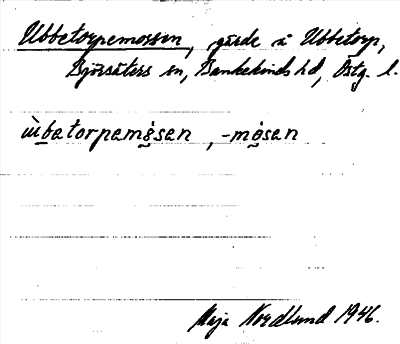 Ubbetorpemossen, gärde i Ubbetorp,
Björsäters sn, Bankekinds hd, Östg. l.
ùbetorpemòsen, -mòsen
Maja Nordlund 1946.